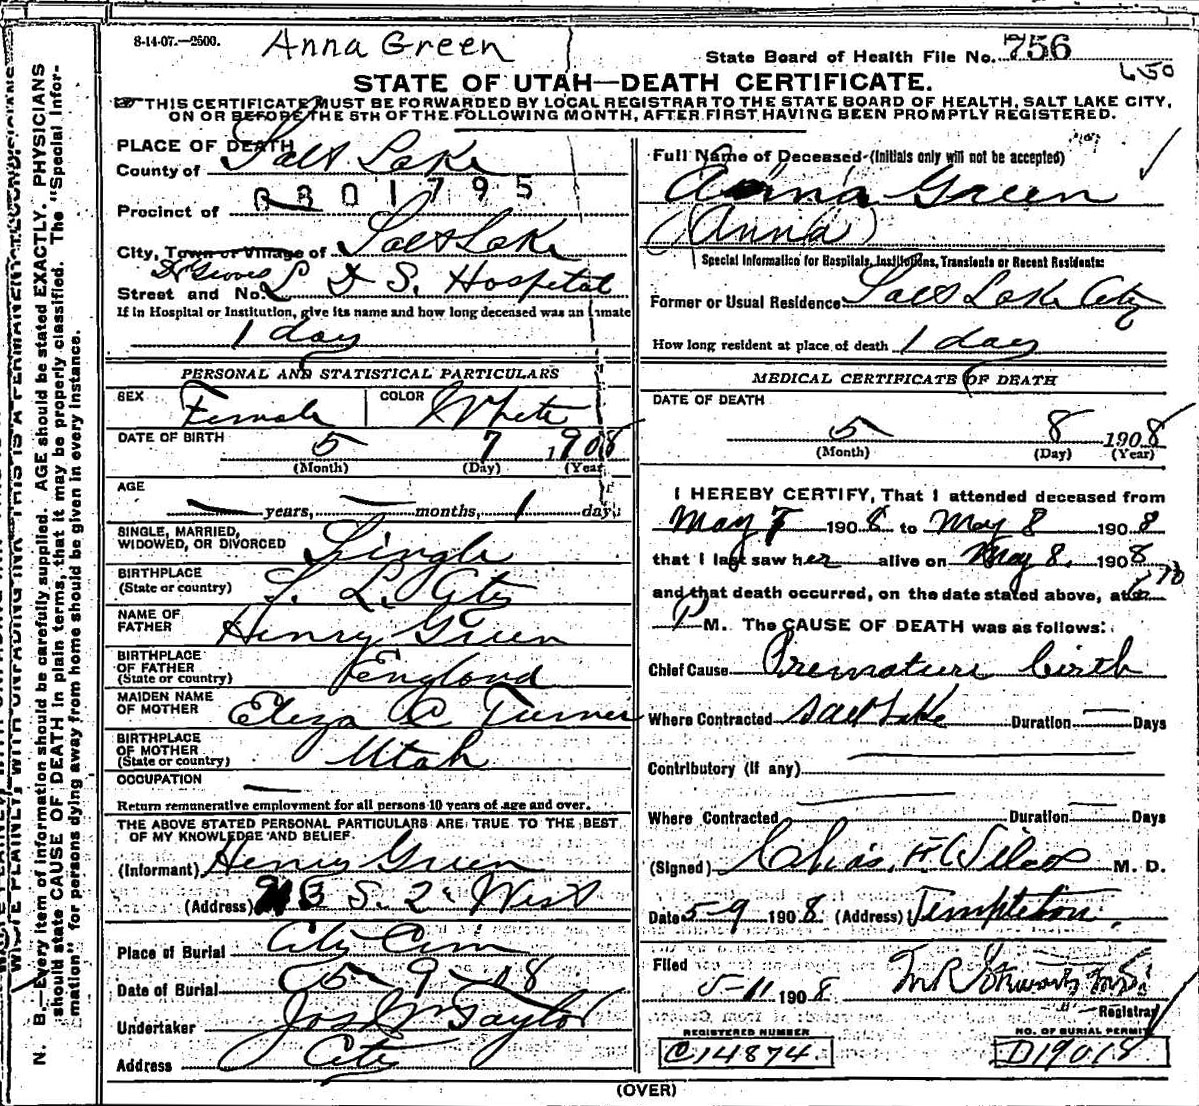 8-14-07.—2500.
Anna Green
State Board of Health File No. 756
650
STATE OF UTAH—DEATH CERTIFICATE.
THIS CERTIFICATE MUST BE FORWARDED BY LOCAL REGISTRAR TO THE STATE BOARD OF HEALTH, SALT LAKE CITY,
ON OR BEFORE THE 5TH OF THE FOLLOWING MONTH, AFTER FIRST HAVING BEEN PROMPTLY REGISTERED.
PLACE OF DEATH
County of Salt Lake
0301795
Precinct of
City, Town or Village of Salt Lake
Street and No. L D S. Hospital
If in Hospital or Institution, give its name and how long deceased was an inmate
1 day
PERSONAL AND STATISTICAL PARTICULARS
SEX Female COLOR White
DATE OF BIRTH 5 7 1908
(Month) (Day) (Year)
AGE — years, — months, 1 days
SINGLE, MARRIED,
WIDOWED, OR DIVORCED Single
BIRTHPLACE
(State or country) S. L. City
NAME OF
FATHER Henry Green
BIRTHPLACE
OF FATHER
(State or country) England
MAIDEN NAME
OF MOTHER Eliza C Turner
BIRTHPLACE
OF MOTHER
(State or country) Utah
OCCUPATION —
Return remunerative employment for all persons 10 years of age and over.
THE ABOVE STATED PERSONAL PARTICULARS ARE TRUE TO THE BEST
OF MY KNOWLEDGE AND BELIEF.
(Informant) Henry Green
(Address) S. 2d West
Place of Burial City Cem
Date of Burial 5-9-08
Undertaker Jos Wm Taylor
Address City
Full Name of Deceased (Initials only will not be accepted)
Anna Green
(Anna)
Special Information for Hospitals, Institutions, Transients or Recent Residents:
Former or Usual Residence Salt Lake City
How long resident at place of death 1 day
MEDICAL CERTIFICATE OF DEATH
DATE OF DEATH
5 8 1908
(Month) (Day) (Year)
I HEREBY CERTIFY, That I attended deceased from
May 7 1908 to May 8 1908
that I last saw her alive on May 8. 1908
and that death occurred, on the date stated above, at
P M. The CAUSE OF DEATH was as follows:
Chief Cause Premature birth
Where Contracted Salt Lake Duration — Days
Contributory (if any) —
Where Contracted — Duration — Days
(Signed) Chas. F Wilcox M. D.
Date 5-9 1908 (Address) Templeton.
Filed
5-11 1908
Registrar
REGISTERED NUMBER
C14874
NO. OF BURIAL PERMIT
D19018
(OVER)
N. B.—Every item of information should be carefully supplied. AGE should be stated EXACTLY. PHYSICIANS
should state CAUSE OF DEATH in plain terms, that it may be properly classified. The "Special Infor-
mation" for persons dying away from home should be given in every instance.